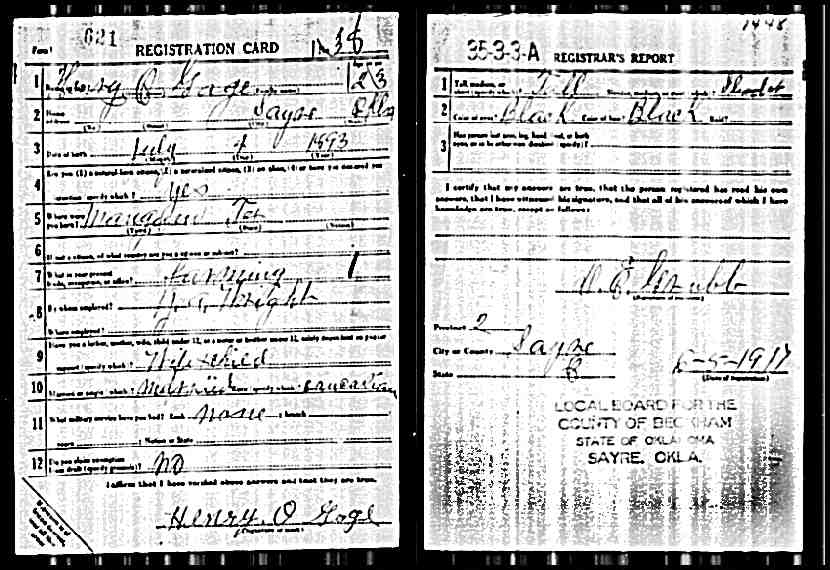 Form 1 621 REGISTRATION CARD No. 38
1 Henry O Gage 23
2 Sayre Okla
3 Date of birth July 4 1893
(Month) (Day) (Year)
4 Are you (1) a natural-born citizen, (2) a naturalized citizen, (3) an alien, (4) or have you declared your
intention (specify which)? yes
5 Where were you born? Tex
(Town) (State) (Nation)
6 If not a citizen, of what country are you a citizen or subject?
7 What is your present trade, occupation, or office? Farming 1
8 By whom employed? Wright
Where employed?
9 Have you a father, mother, wife, child under 12, or a sister or brother under 12, solely dependent on you for
support (specify which)? Wife & child
10 Married or single (which)? Married Race (specify which)? Caucasian
11 What military service have you had? Rank none ; branch
years ; Nation or State
12 Do you claim exemption from draft (specify grounds)? No
I affirm that I have verified above answers and that they are true.
Henry. O Gage
35-3-3-A REGISTRAR'S REPORT
1 Tall, medium, or short (specify which)? Tall
2 Color of eyes? Black Color of hair? Black Bald?
3 Has person lost arm, leg, hand, foot, or both eyes, or is he otherwise disabled (specify)?
I certify that my answers are true, that the person registered has read his own
answers, that I have witnessed his signature, and that all of his answers of which I have
knowledge are true, except as follows:
Precinct 2
City or County Sayre
State
6-5-1917
(Date of registration)
LOCAL BOARD FOR THE
COUNTY OF BECKHAM
STATE OF OKLAHOMA
SAYRE, OKLA.